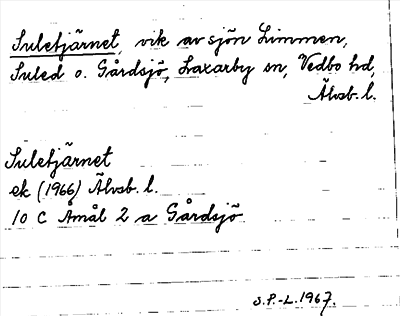 Suletjärnet, vik av sjön Limmen,
Suled o. Gårdsjö, Laxarby sn, Vedbo hd,
Älvsb. l.
Suletjärnet
ek (1966) Älvsb. l.
10 C Åmål 2 a Gårdsjö
S.P.-L. 1967.